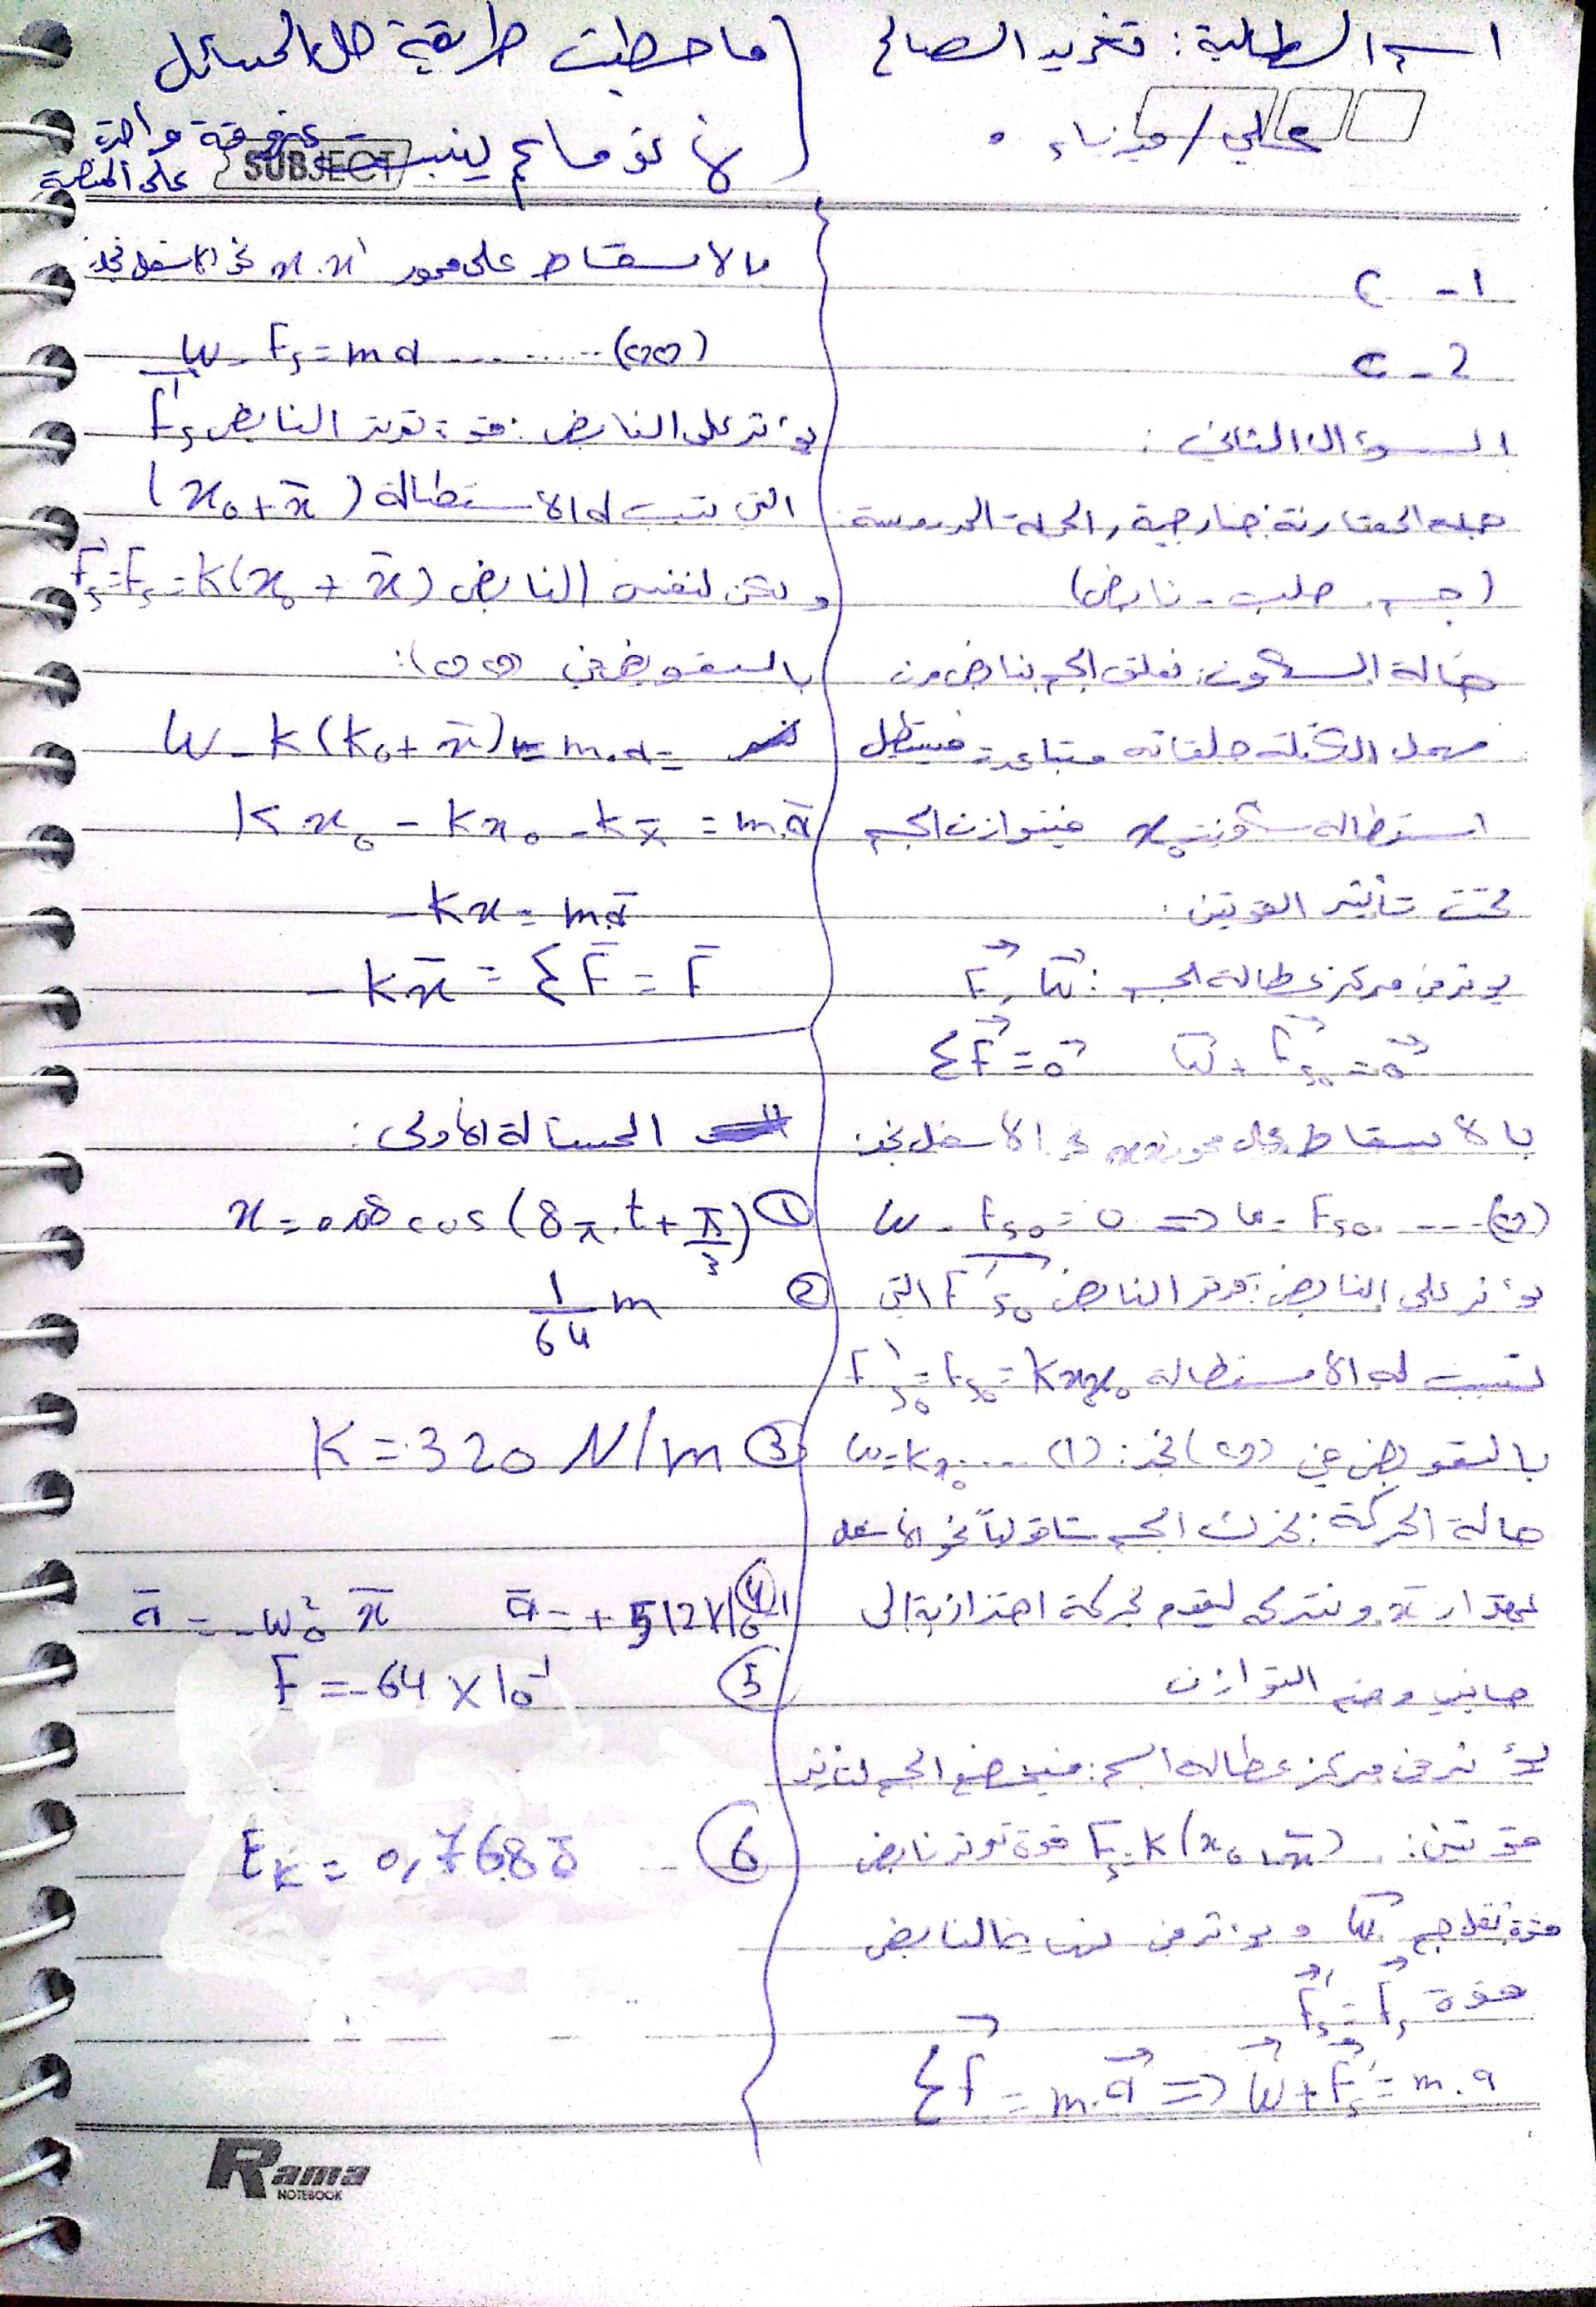 اسم الطالبة: تغريد الصالح
علمي / فيزياء
(ما حطيت طريقة حل المسائل
لأنو ما عم ينبعت غير ورقة واحدة
على المنصة
SUBJECT
1- C
2- C
السؤال الثاني:
جملة المقارنة: خارجية, الجملة المدروسة
(جسم صلب - نابض)
حالة السكون: نعلق الجسم بنابض مرن
مهمل الكتلة حلقاته متباعدة فيستطيل
استطالة سكونية x₀ فيتوازن الجسم
تحت تأثير القوتين.
يؤثر في مركز عطالة الجسم: W⃗, F⃗
ΣF⃗ = 0⃗ W⃗ + F⃗s₀ = 0⃗
بالاسقاط على محور xx' نحو الأسفل نجد:
W - Fs₀ = 0 ⇒ W = Fs₀ ...
يؤثر على النابض: قوة توتر النابض F⃗'s₀ التي
تسبب له الاستطالة F's₀ = Fs₀ = Kx₀
بالتعويض في نجد: (1) .... W = Kx₀
حالة الحركة: نحرك الجسم شاقولياً نحو الأسفل
بمقدار x̄ ونتركه ليقوم بحركة اهتزازية إلى
جانبي وضع التوازن
يؤثر في مركز عطالة الجسم: فيخضع الجسم لتأثير
قوتين: Fs = k(x₀ + x̄) قوة توتر نابض
قوة ثقل جسم W⃗ ويؤثر في نهاية النابض
قوة F⃗'s = F⃗s
ΣF⃗ = m.a⃗ ⇒ W⃗ + F⃗s = m.a
بالاسقاط على محور x.x' نحو الاسفل نجد:
W - Fs = ma ........
يؤثر على النابض: قوة توتر النابض F⃗'s
التي تسبب له الاستطالة (x₀ + x̄)
ولكن لنفس النابض F's = Fs = K(x₀ + x̄)
بالتعويض في:
W - K(K₀ + x̄) = m.a
Kx₀ - Kx₀ - kx̄ = m.ā
-Kx = mā
-kx̄ = ΣF̄ = F̄
المسألة الأولى:
① x = 0.08 cos (8π.t + π/3)
② 1/64 m
③ K = 320 N/m
④ ā = -ω₀² x̄
⑤ F = -64 × 10⁻¹
⑥ Ek = 0,768 J
Rama
NOTEBOOK